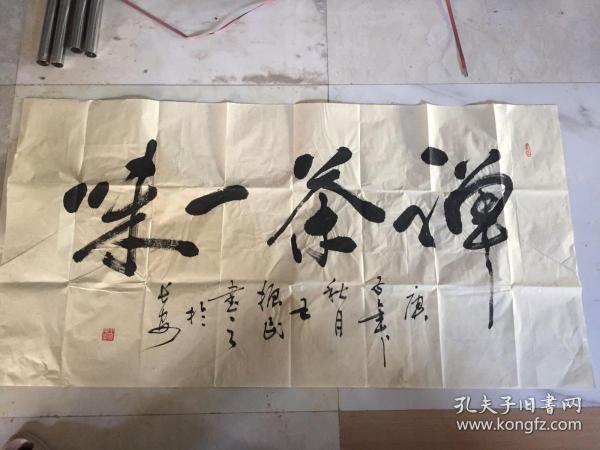 禅茶一味
庚
子年
秋月
王
振民
書之
於
长安
孔夫子旧书网
www.kongfz.com